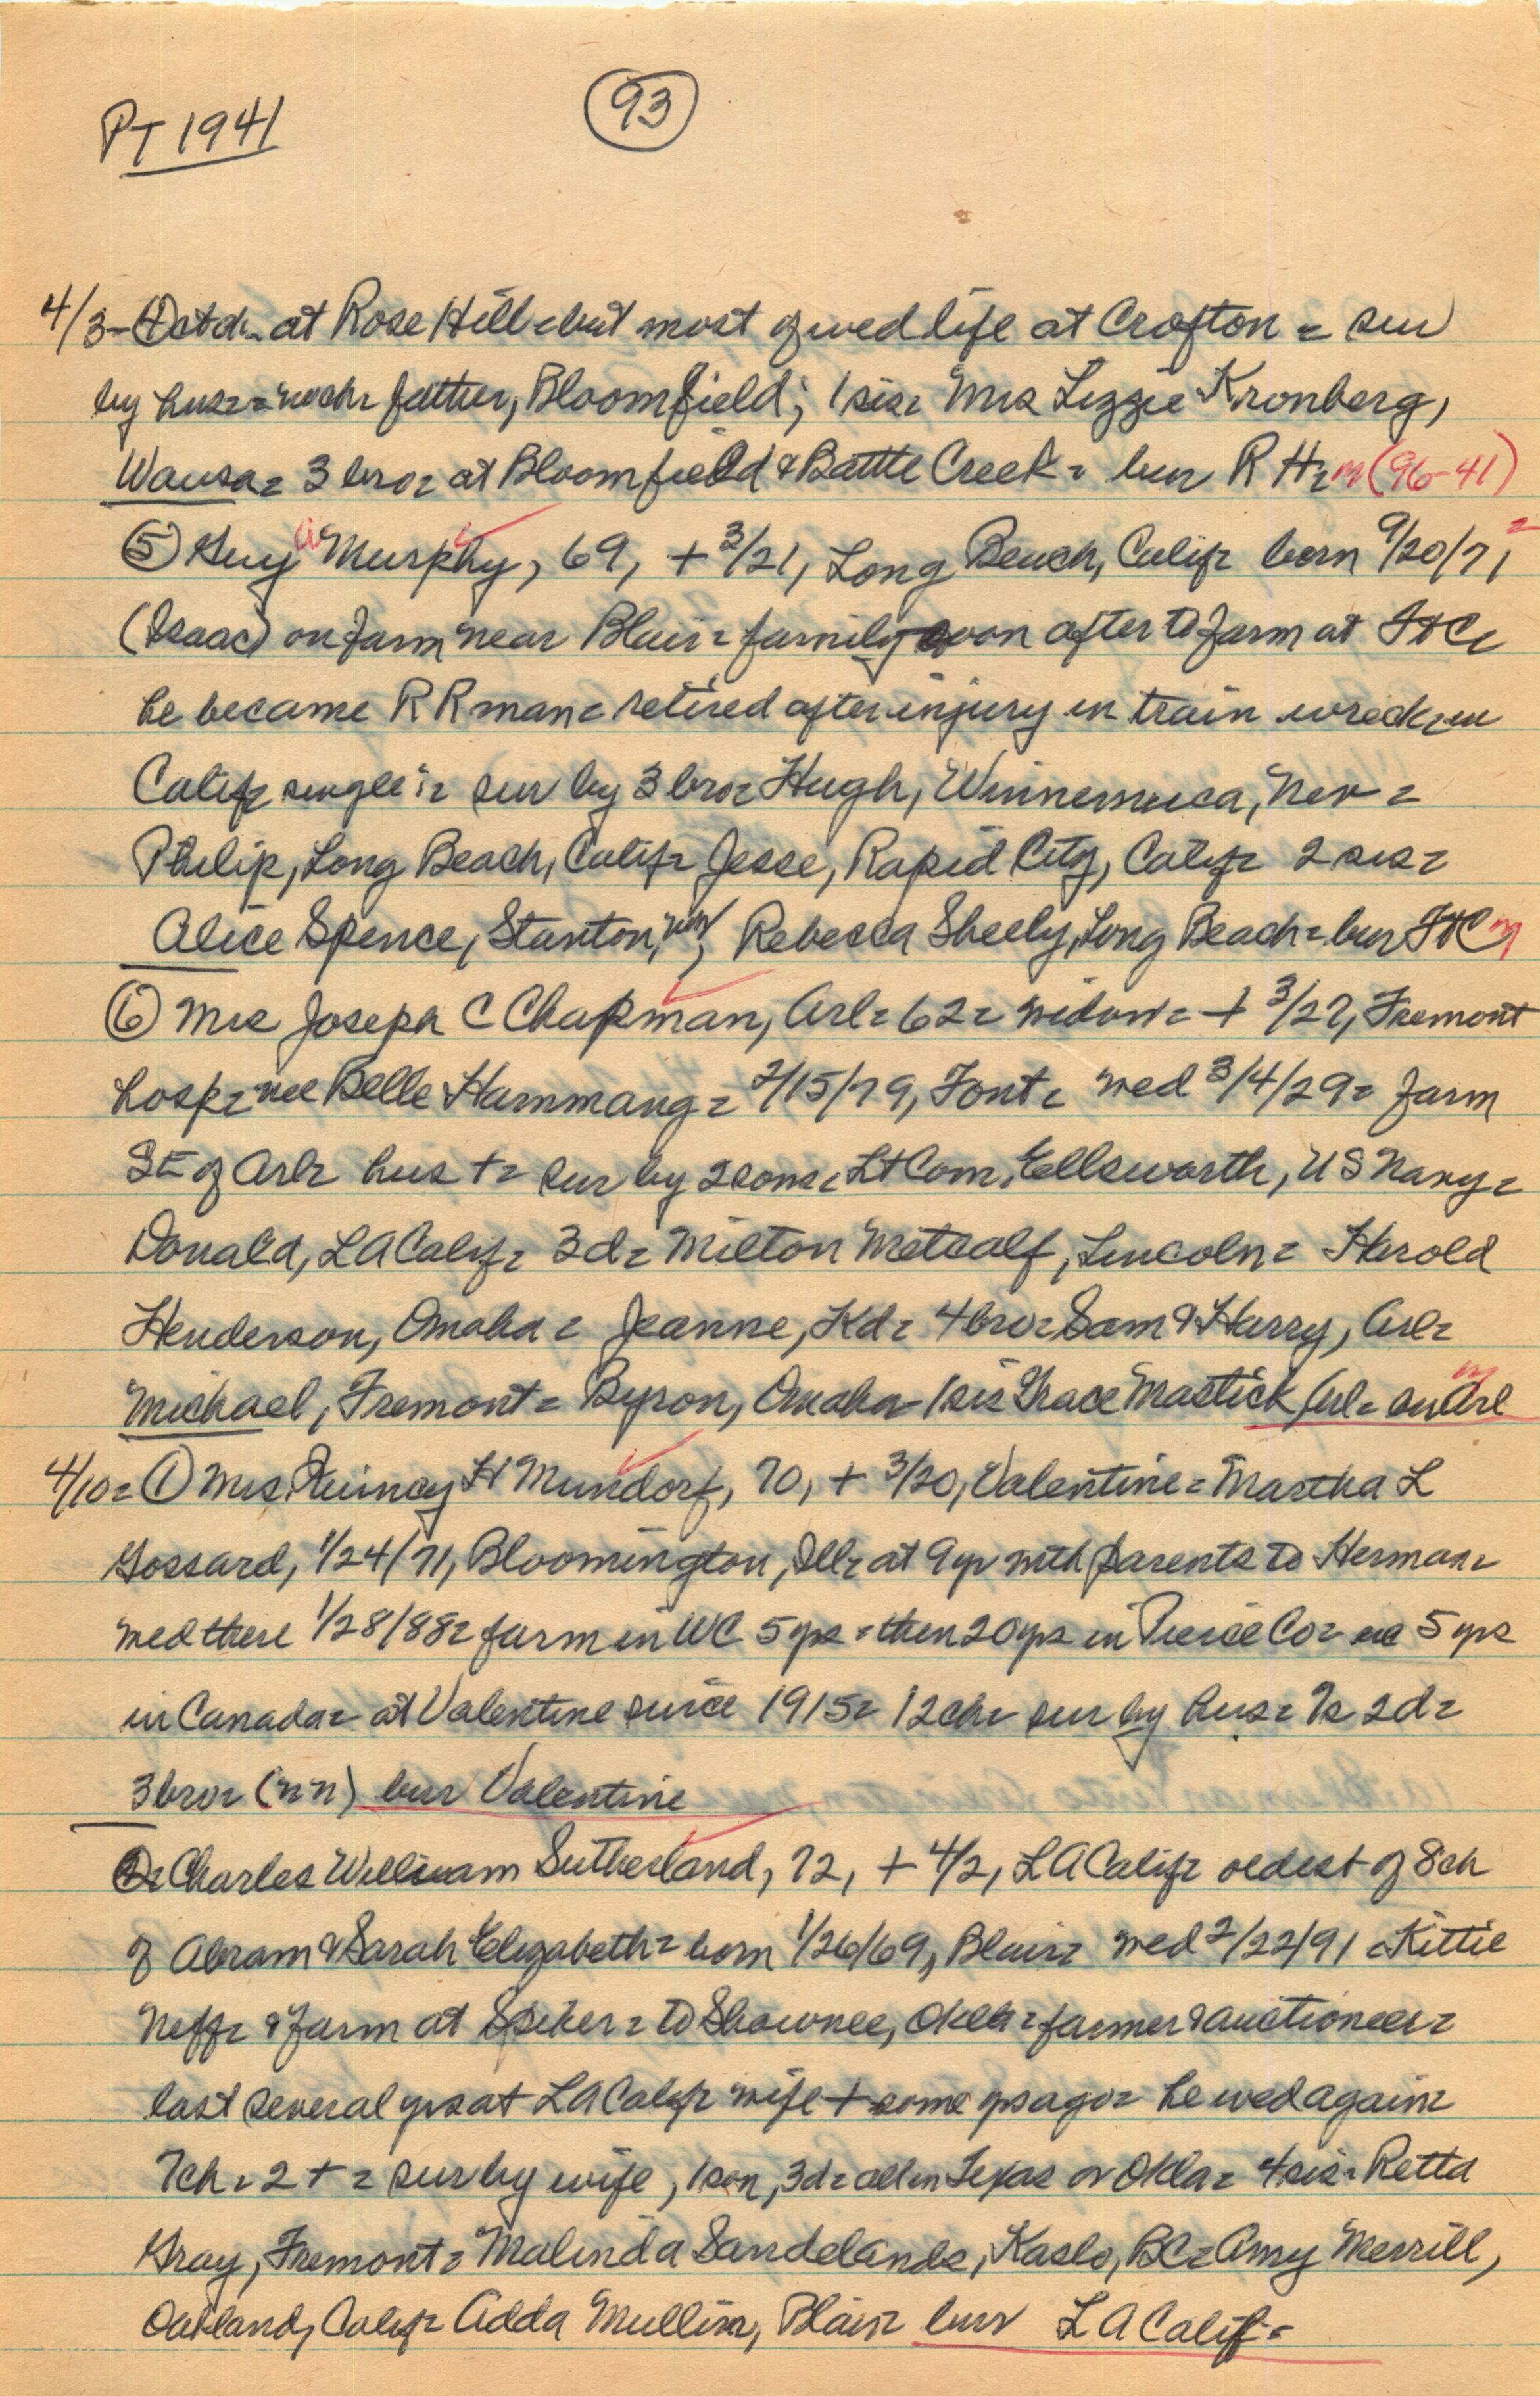 PT 1941
93
4/3- 4 ctd. at Rose Hill = but most of wed life at Crofton = sur
by hus = no ch = father, Bloomfield; 1 sis = Mrs Lizzie Kronberg,
Wausa = 3 bro = at Bloomfield & Battle Creek = bur R H = m (96-41)
5 Guy a Murphy, 69, + 3/21, Long Beach, Calif = born 9/20/71 =
(Isaac) on farm near Blair = family soon after to farm at Ft C =
he became R R man = retired after injury in train wreck = in
Calif = single = sur by 3 bro = Hugh, Winnemuca, Nev =
Philip, Long Beach, Calif = Jesse, Rapid City, Calif = 2 sis =
Alice Spence, Stanton, ; Rebecca Sheely, Long Beach = bur Ft C m
6 Mrs Joseph C Chapman, Arl = 62 = widow = + 3/27, Fremont
hosp = nee Belle Hammang = 2/15/79, Font = wed 3/4/29 = farm
SE of Arl = hus + = sur by 2 sons = Lt Com. Ellsworth, US Navy =
Donald, LA Calif = 3 d = Milton Metcalf, Lincoln = Harold
Henderson, Omaha = Jeanne, Kd = 4 bro = Sam & Harry, Arl =
Michael, Fremont = Byron, Omaha - 1 sis Grace Mastick, Arl = bur Arl m
4/10 = 1 Mrs. Quincay H Mundorf, 70, + 3/20, Valentine = Martha L
Gossard, 1/24/71, Bloomington, Ill = at 9 yr with parents to Herman =
wed there 1/28/88 = farm in WC 5 yrs = then 20 yrs in Pierce Co = 5 yrs
in Canada = at Valentine since 1915 = 12 ch = sur by hus = 7s 2d =
3 bro = (n n) bur Valentine
2 = Charles William Sutherland, 72, + 4/2, LA Calif = oldest of 8 ch
of Abram & Sarah Elizabeth = born 1/26/69, Blair = wed 2/22/91 = Kittie
Neff = & farm at Spiker = to Shawnee, Okla = farmer & auctioneer =
last several yrs at LA Calif = wife + some yrs ago = he wed again =
7 ch = 2 + = sur by wife, 1 son, 3 d = all in Texas or Okla = 4 sis = Retta
Gray, Fremont = Malinda Sandelands, Kaslo, BC = Amy Merrill,
Oakland, Calif = Adda Mullin, Blair = bur L A Calif =